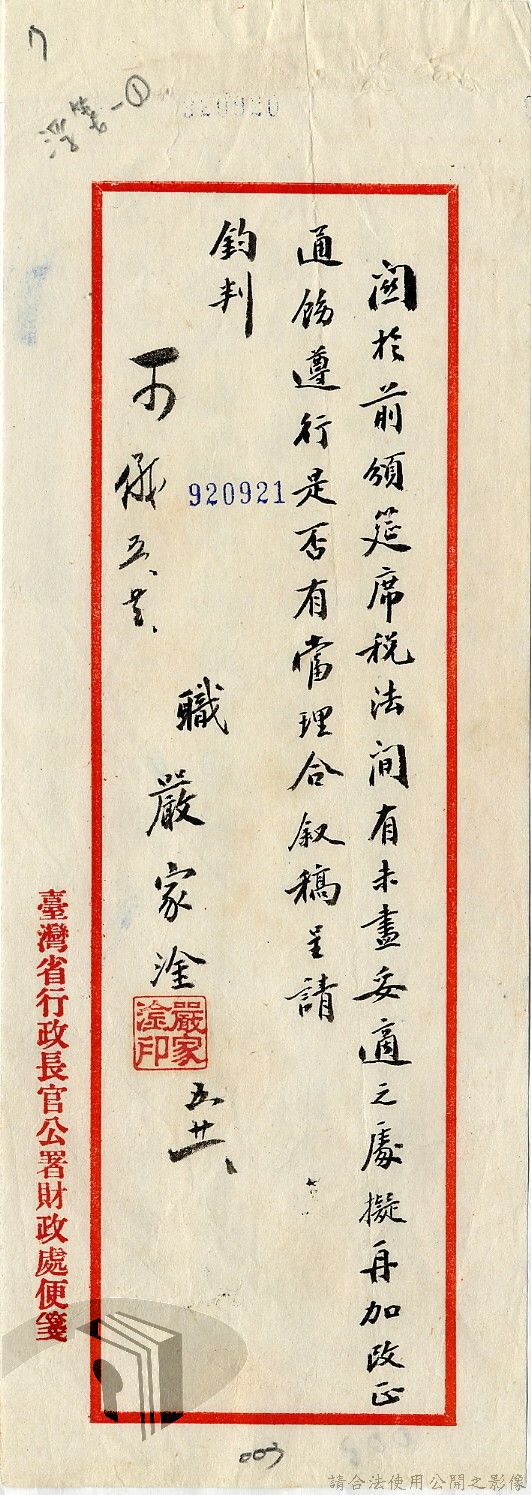 關於前頒筵席稅法間有未盡妥適之處擬再加改正
通飭遵行是否有當理合敘稿呈請
鈞判
職嚴家淦
嚴家淦印
五廿一、
可 儀 五、廿一、
920921
浮簽一①
臺灣省行政長官公署財政處便箋
003
請合法使用公開之影像